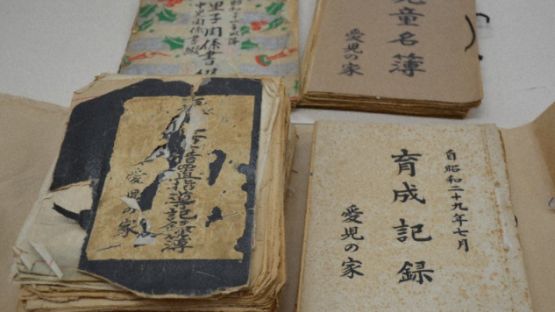 里子関係書
児童名簿
愛児の家
措置指導記録簿
愛児の家
自昭和二十九年七月
育成記録
愛児の家